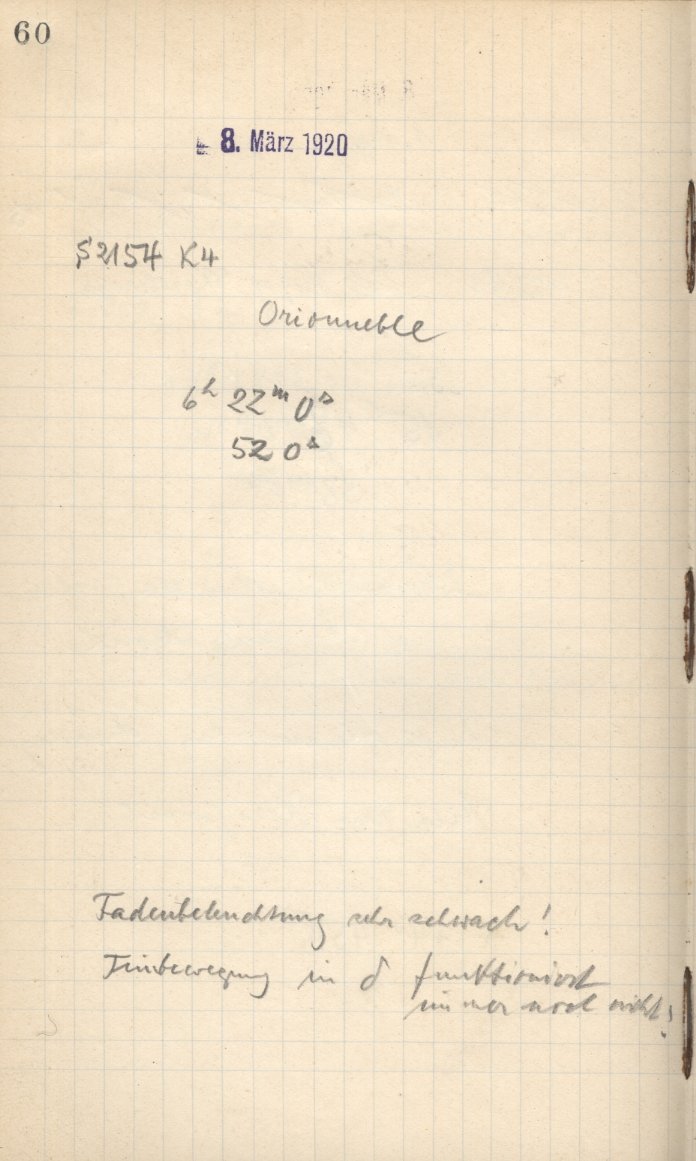 60
8. März 1920
S 2154 K4
Orionneble
6ʰ 22ᵐ 0ˢ
52 0ˢ
Fadenbeleuchtung sehr schwach!
Feinbewegung in δ funktioniert
immer noch nicht!